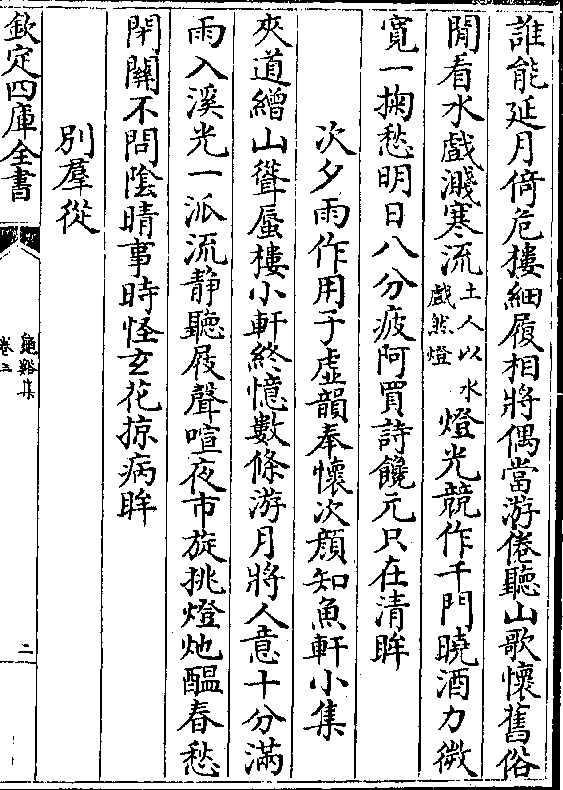 誰能延月倚危樓細履相將偶當游倦聽山歌懷舊俗
閒看水戲濺寒流土人以水戲然燈燈光競作千門曉酒力微
寛一掬愁明日八分疲阿買詩饞元只在清眸
次夕雨作用于虚韻奉懷次顔知魚軒小集
夾道繒山聳蜃樓小軒終憶數條游月將人意十分滿
雨入溪光一派流静聽屐聲喧夜市旋挑燈灺醖春愁
閉關不問隂晴事時怪玄花掠病眸
別羣從
欽定四庫全書
龜谿集
卷三
二